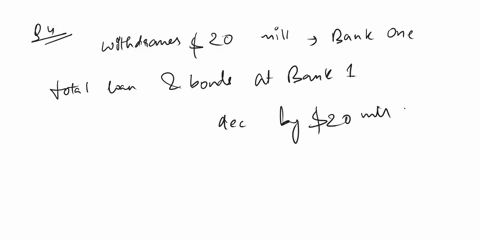 Q4
withdrawes $20 mill → Bank One
total loan & bonds at Bank 1
dec by $20 mill.